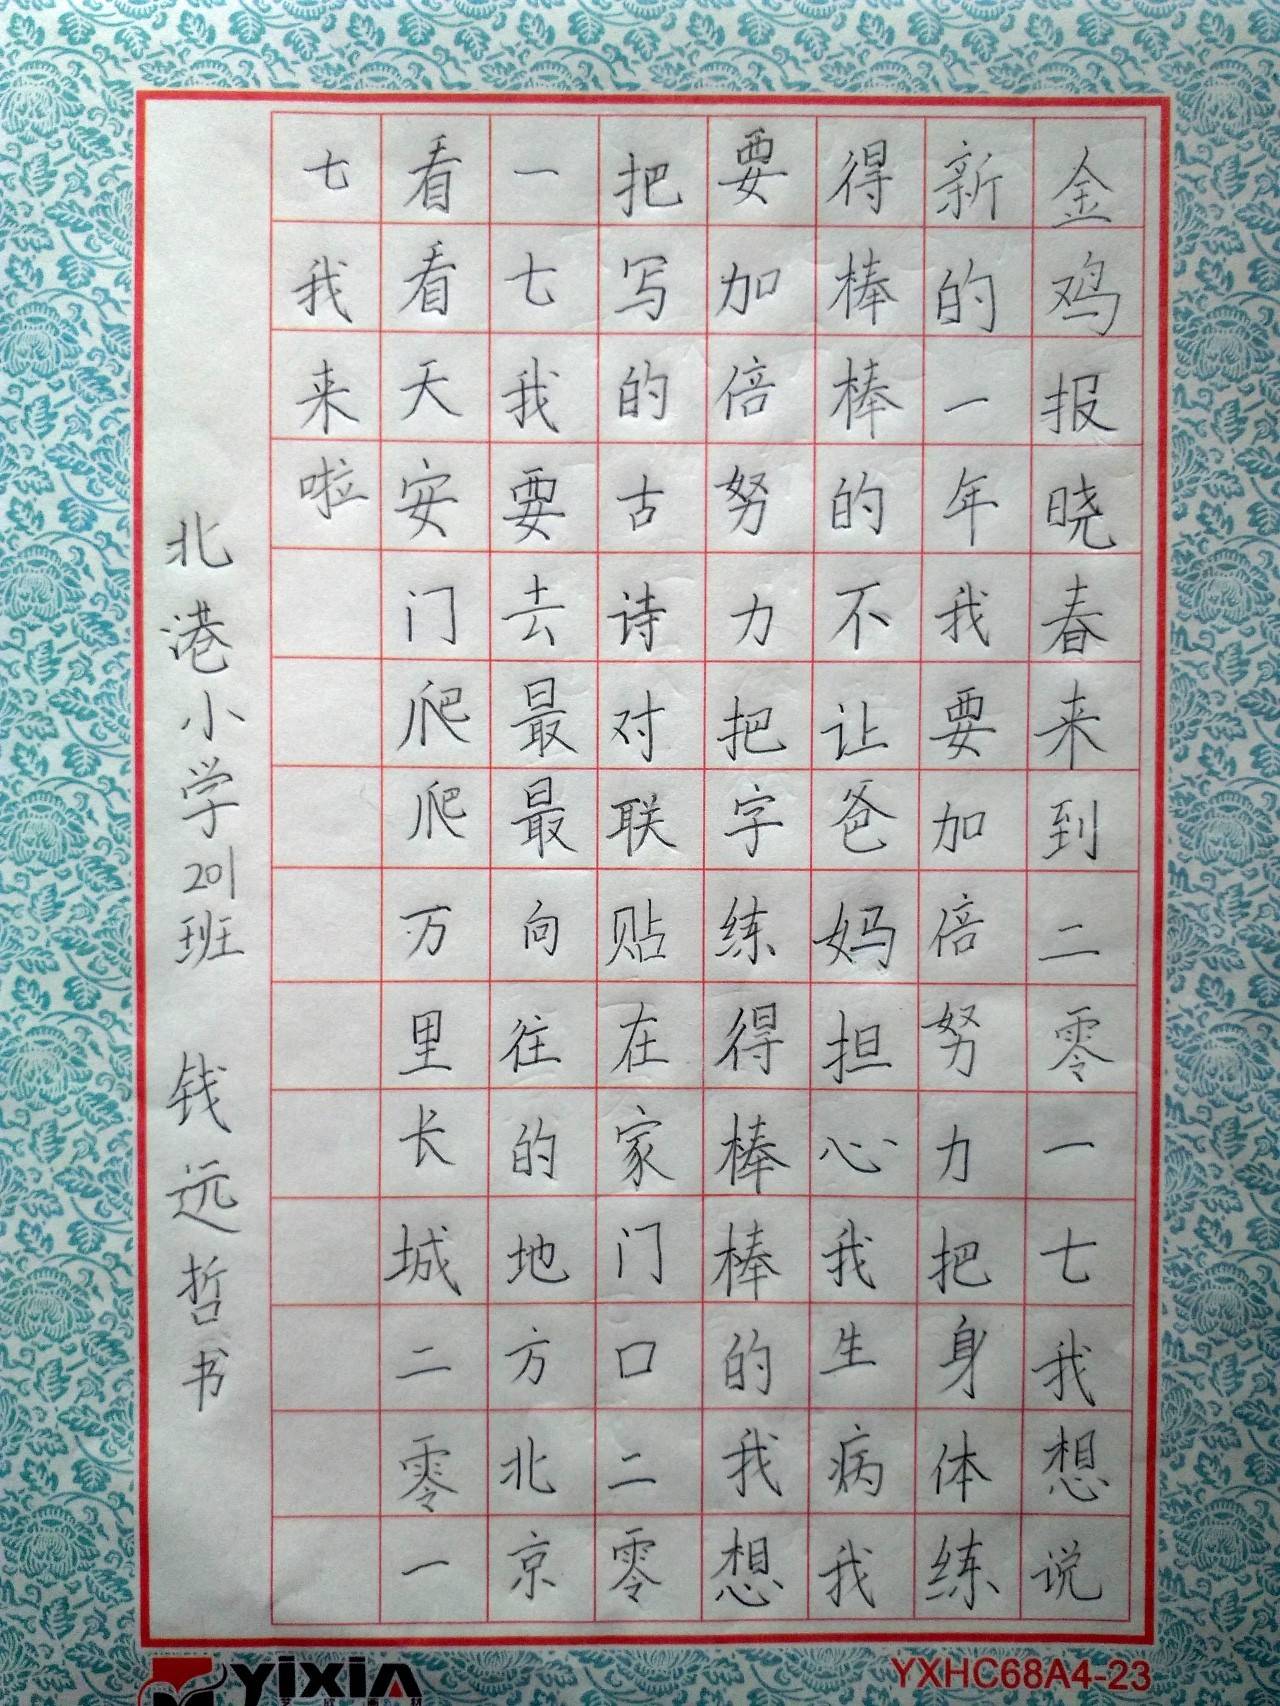 金鸡报晓春来到二零一七我想说
新的一年我要加倍努力把身体练
得棒棒的不让爸妈担心我生病我
要加倍努力把字练得棒棒的我想
把写的古诗对联贴在家门口二零
一七我要去最最向往的地方北京
看看天安门爬爬万里长城二零一
七我来啦
北港小学201班 钱远哲书
YIXIN
YXHC68A4-23